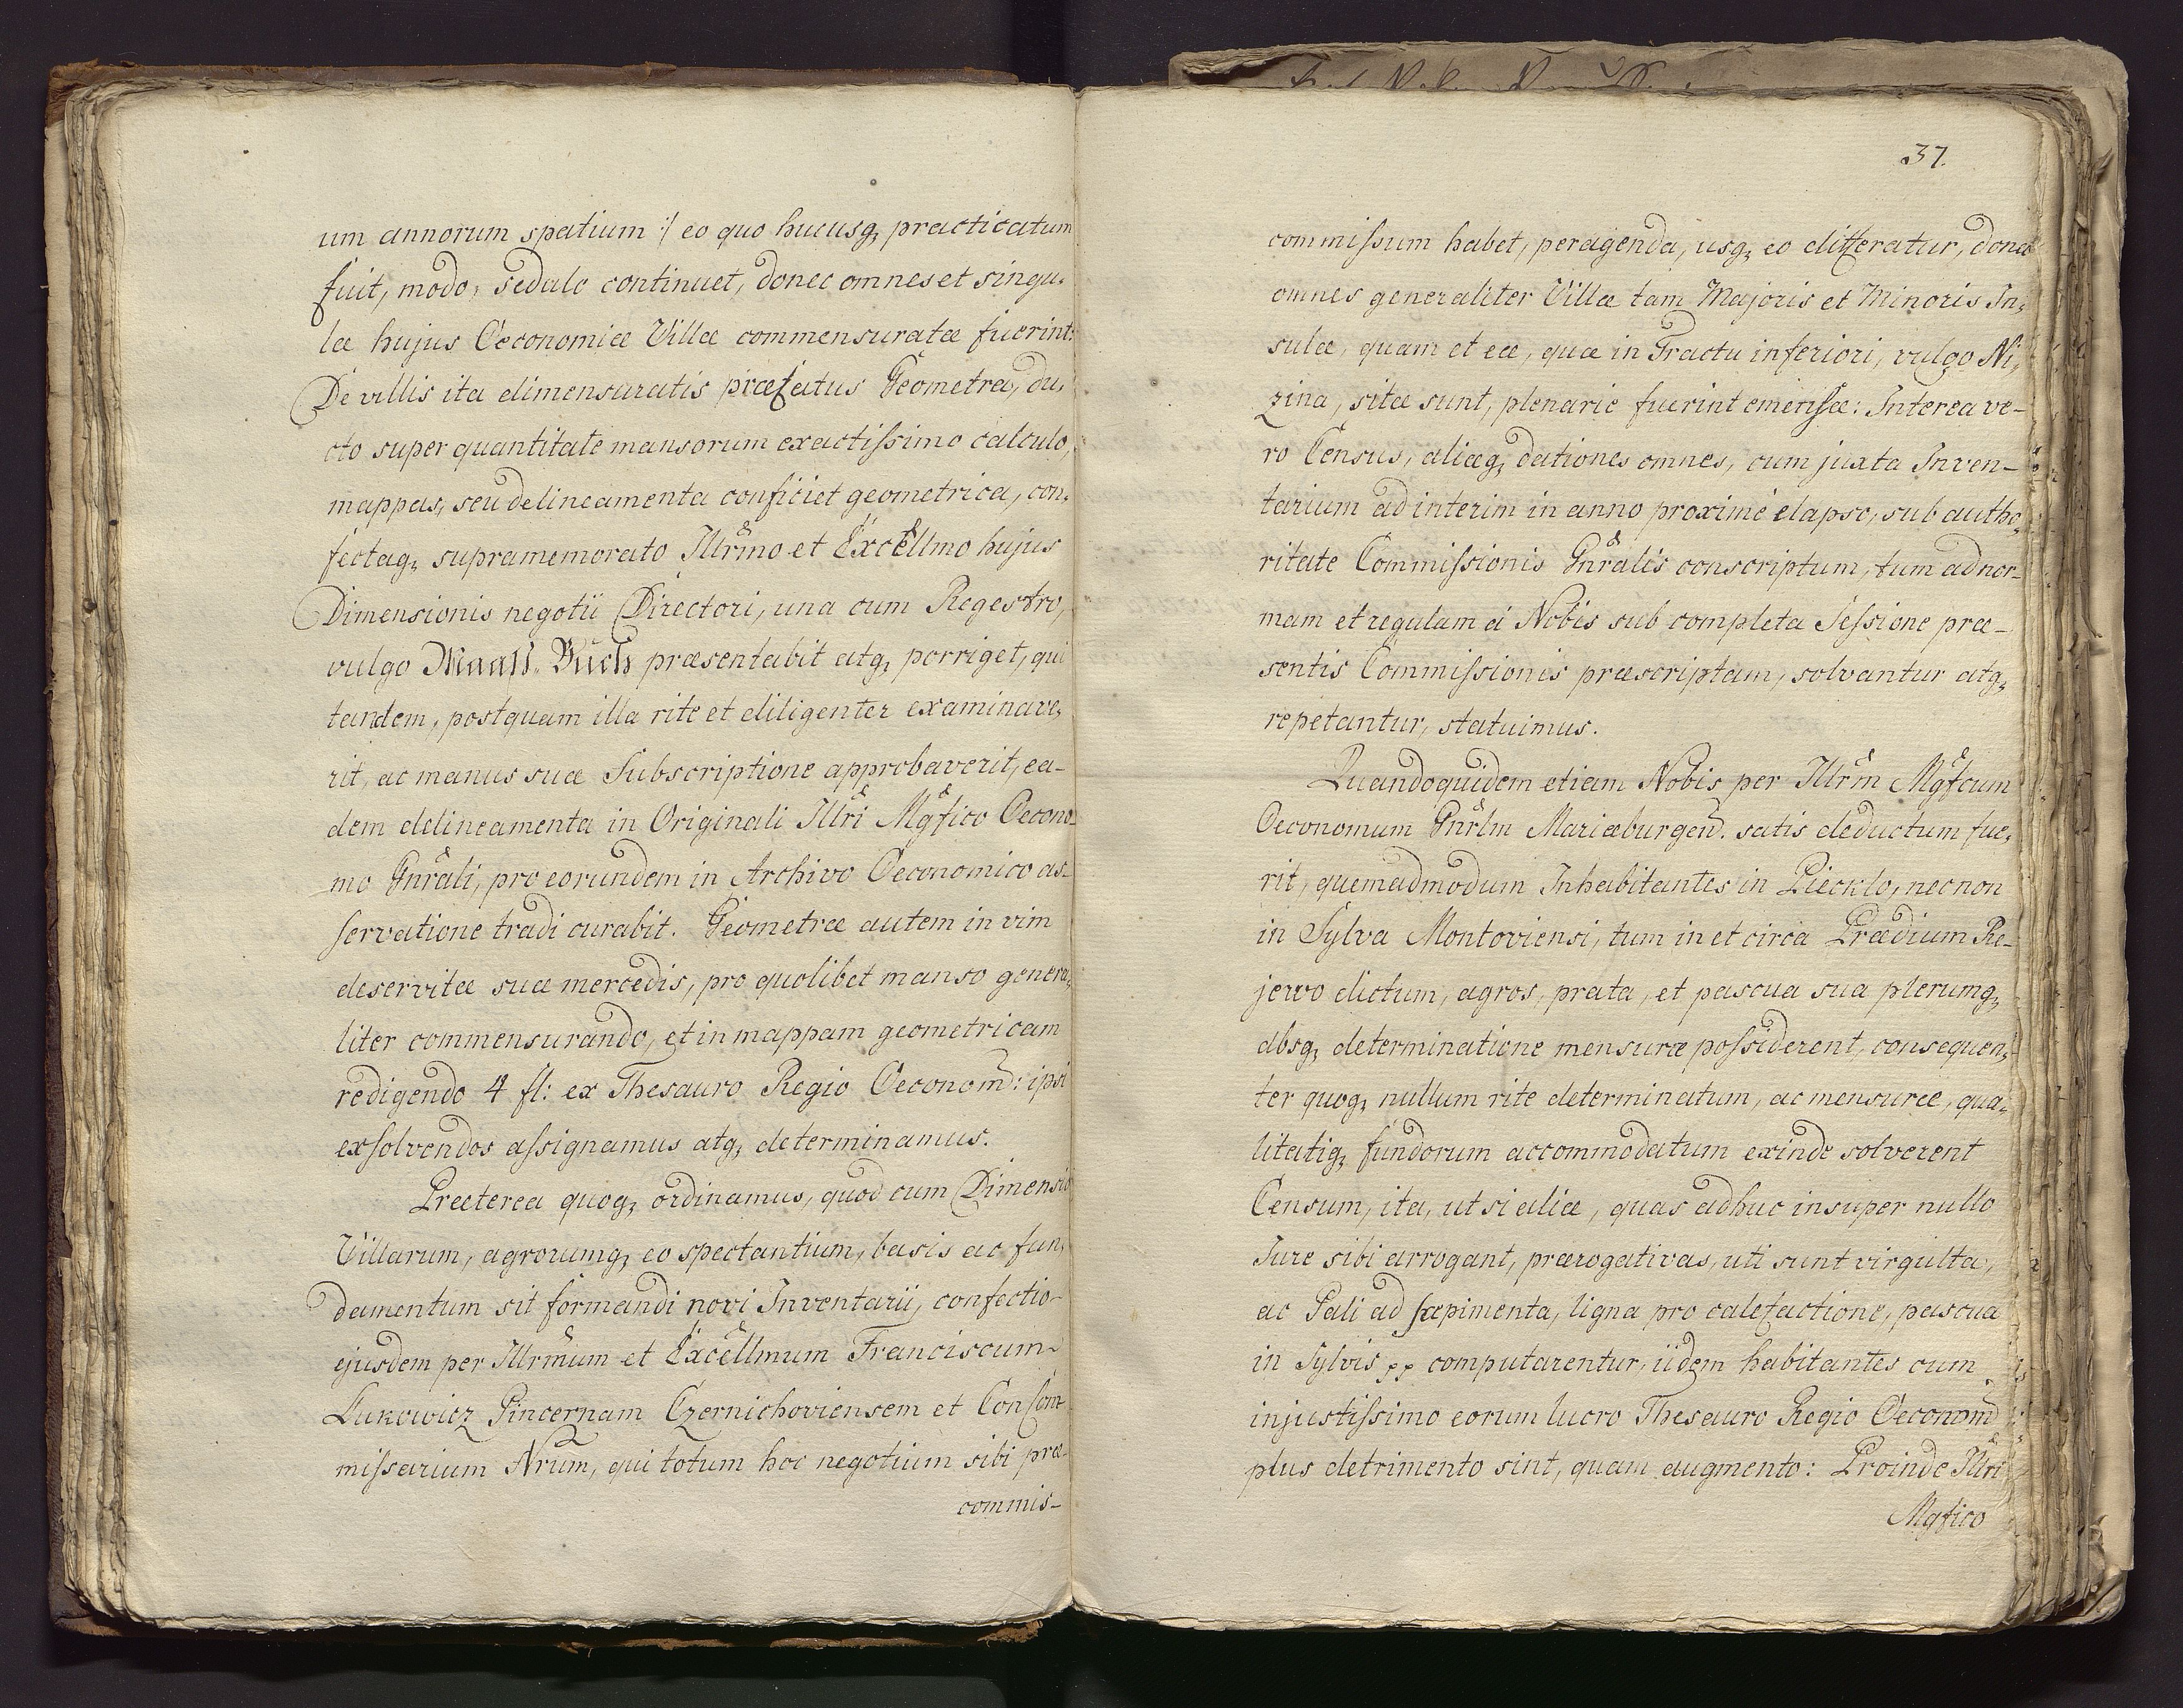 um annorum spatium :/ eo quo hucusq, practicatum
fuit, modo, sedulo continuet, donec omnes et singu-
læ hujus Oeconomiæ Villæ commensuratæ fuerint:
De villis ita dimensuratis præfatus Geometra, du-
cto super quantitate mansorum exactissimo calculo,
mappas, seu delineamenta conficiet geometrica, con-
fectaq, supramemorato Illrmo et Excellmo hujus
Dimensionis negotii Directori, una cum Regestro,
vulgo Maaß-Buch præsentabit atq, porriget, qui
tandem, postquam illa rite et diligenter examinave-
rit, ac manus suæ Subscriptione approbaverit, ea-
dem delineamenta in Originali Illri Mgfico Oecono-
mo Gnrali, pro eorundem in Archivo Oeconomico as-
servatione tradi curabit. Geometræ autem in vim
deservitæ suæ mercedis, pro quolibet manso genera-
liter commensurando, et in mappam geometricam
redigendo 4 fl: ex Thesauro Regio Oeconom: ipsi
exsolvendos assignamus atq, determinamus.
Præterea quoq, ordinamus, quod cum Dimensio
Villarum, agrorumq, eo spectantium, basis ac fun-
damentum sit formandi novi Inventarii, confectio
ejusdem per Illrmum et Excellmum Franciscum
Lukowicz Pincernam Czernichoviensem et ConCom-
missarium Nrum, qui totum hoc negotium sibi præ-
commis-
37.
commissum habet, peragenda, usq, eo differatur, donec
omnes generaliter Villæ tam Majoris et Minoris In-
sulæ, quam et eæ, quæ in Tractu inferiori, vulgo Ni-
zina, sitæ sunt, plenarie fuerint emensæ: Interea ve-
ro Census, aliæq, dationes omnes, cum juxta Inven-
tarium ad interim in anno proximè elapso, sub autho-
ritate Commissionis Gnralis conscriptum, tum ad nor-
mam et regulam à Nobis sub completa Sessione præ-
sentis Commissionis præscriptam, solvantur atq,
repetantur, statuimus.
Quandoquidem etiam Nobis per Illrm Mgfcum
Oeconomum Gnrlm Mariæburgen. satis deductum fue-
rit, quemadmodum Inhabitantes in Piecklo, nec non
in Sylva Montoviensi, tum in et circa Prædium Re-
jewo dictum, agros, prata, et pascua sua plerumq,
absq, determinatione mensuræ possiderent, consequen-
ter quoq, nullum rite determinatum, ac mensuræ, qua-
litatiq, fundorum accommodatum exinde solverent
Censum, ita, ut si aliæ, quas adhuc insuper nullo
Jure sibi arrogant, prærogativas, uti sunt virgulta,
ac Pali ad sæpimenta, ligna pro calefactione, pascua
in Sylvis pp computarentur, iidem habitantes cum
injustissimo eorum lucro Thesauro Regio Oeconom
plus detrimento sint, quam augmento: Proinde Illri
Mgfico